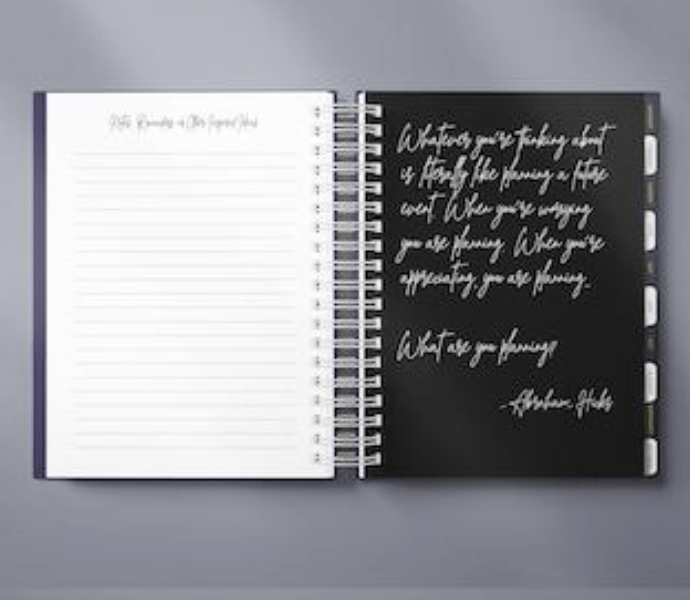 Notes, Reminders or Other Inspired Ideas
Whatever you're thinking about
is literally like planning a future
event. When you're worrying
you are planning. When you're
appreciating you are planning.
What are you planning?
-Abraham Hicks